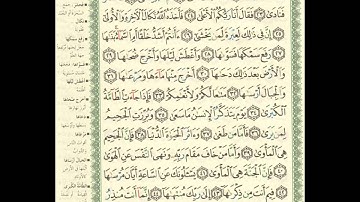 فَنَادَىٰ ٢٣ فَقَالَ أَنَا۠ رَبُّكُمُ ٱلْأَعْلَىٰ ٢٤ فَأَخَذَهُ ٱللَّهُ نَكَالَ ٱلْءَاخِرَةِ وَٱلْأُولَىٰٓ
٢٥ إِنَّ فِى ذَٰلِكَ لَعِبْرَةً لِّمَن يَخْشَىٰٓ ٢٦ ءَأَنتُمْ أَشَدُّ خَلْقًا أَمِ ٱلسَّمَآءُ بَنَىٰهَا
٢٧ رَفَعَ سَمْكَهَا فَسَوَّىٰهَا ٢٨ وَأَغْطَشَ لَيْلَهَا وَأَخْرَجَ ضُحَىٰهَا ٢٩
وَٱلْأَرْضَ بَعْدَ ذَٰلِكَ دَحَىٰهَآ ٣٠ أَخْرَجَ مِنْهَا مَآءَهَا وَمَرْعَىٰهَا ٣١
وَٱلْجِبَالَ أَرْسَىٰهَا ٣٢ مَتَٰعًا لَّكُمْ وَلِأَنْعَٰمِكُمْ ٣٣ فَإِذَا جَآءَتِ ٱلطَّآمَّةُ
ٱلْكُبْرَىٰ ٣٤ يَوْمَ يَتَذَكَّرُ ٱلْإِنسَٰنُ مَا سَعَىٰ ٣٥ وَبُرِّزَتِ ٱلْجَحِيمُ
لِمَن يَرَىٰ ٣٦ فَأَمَّا مَن طَغَىٰ ٣٧ وَءَاثَرَ ٱلْحَيَوٰةَ ٱلدُّنْيَا ٣٨ فَإِنَّ ٱلْجَحِيمَ
هِىَ ٱلْمَأْوَىٰ ٣٩ وَأَمَّا مَنْ خَافَ مَقَامَ رَبِّهِۦ وَنَهَى ٱلنَّفْسَ عَنِ ٱلْهَوَىٰ ٤٠
فَإِنَّ ٱلْجَنَّةَ هِىَ ٱلْمَأْوَىٰ ٤١ يَسْـَٔلُونَكَ عَنِ ٱلسَّاعَةِ أَيَّانَ مُرْسَىٰهَا ٤٢
فِيمَ أَنتَ مِن ذِكْرَىٰهَآ ٤٣ إِلَىٰ رَبِّكَ مُنتَهَىٰهَآ ٤٤ إِنَّمَآ أَنتَ مُنذِرُ